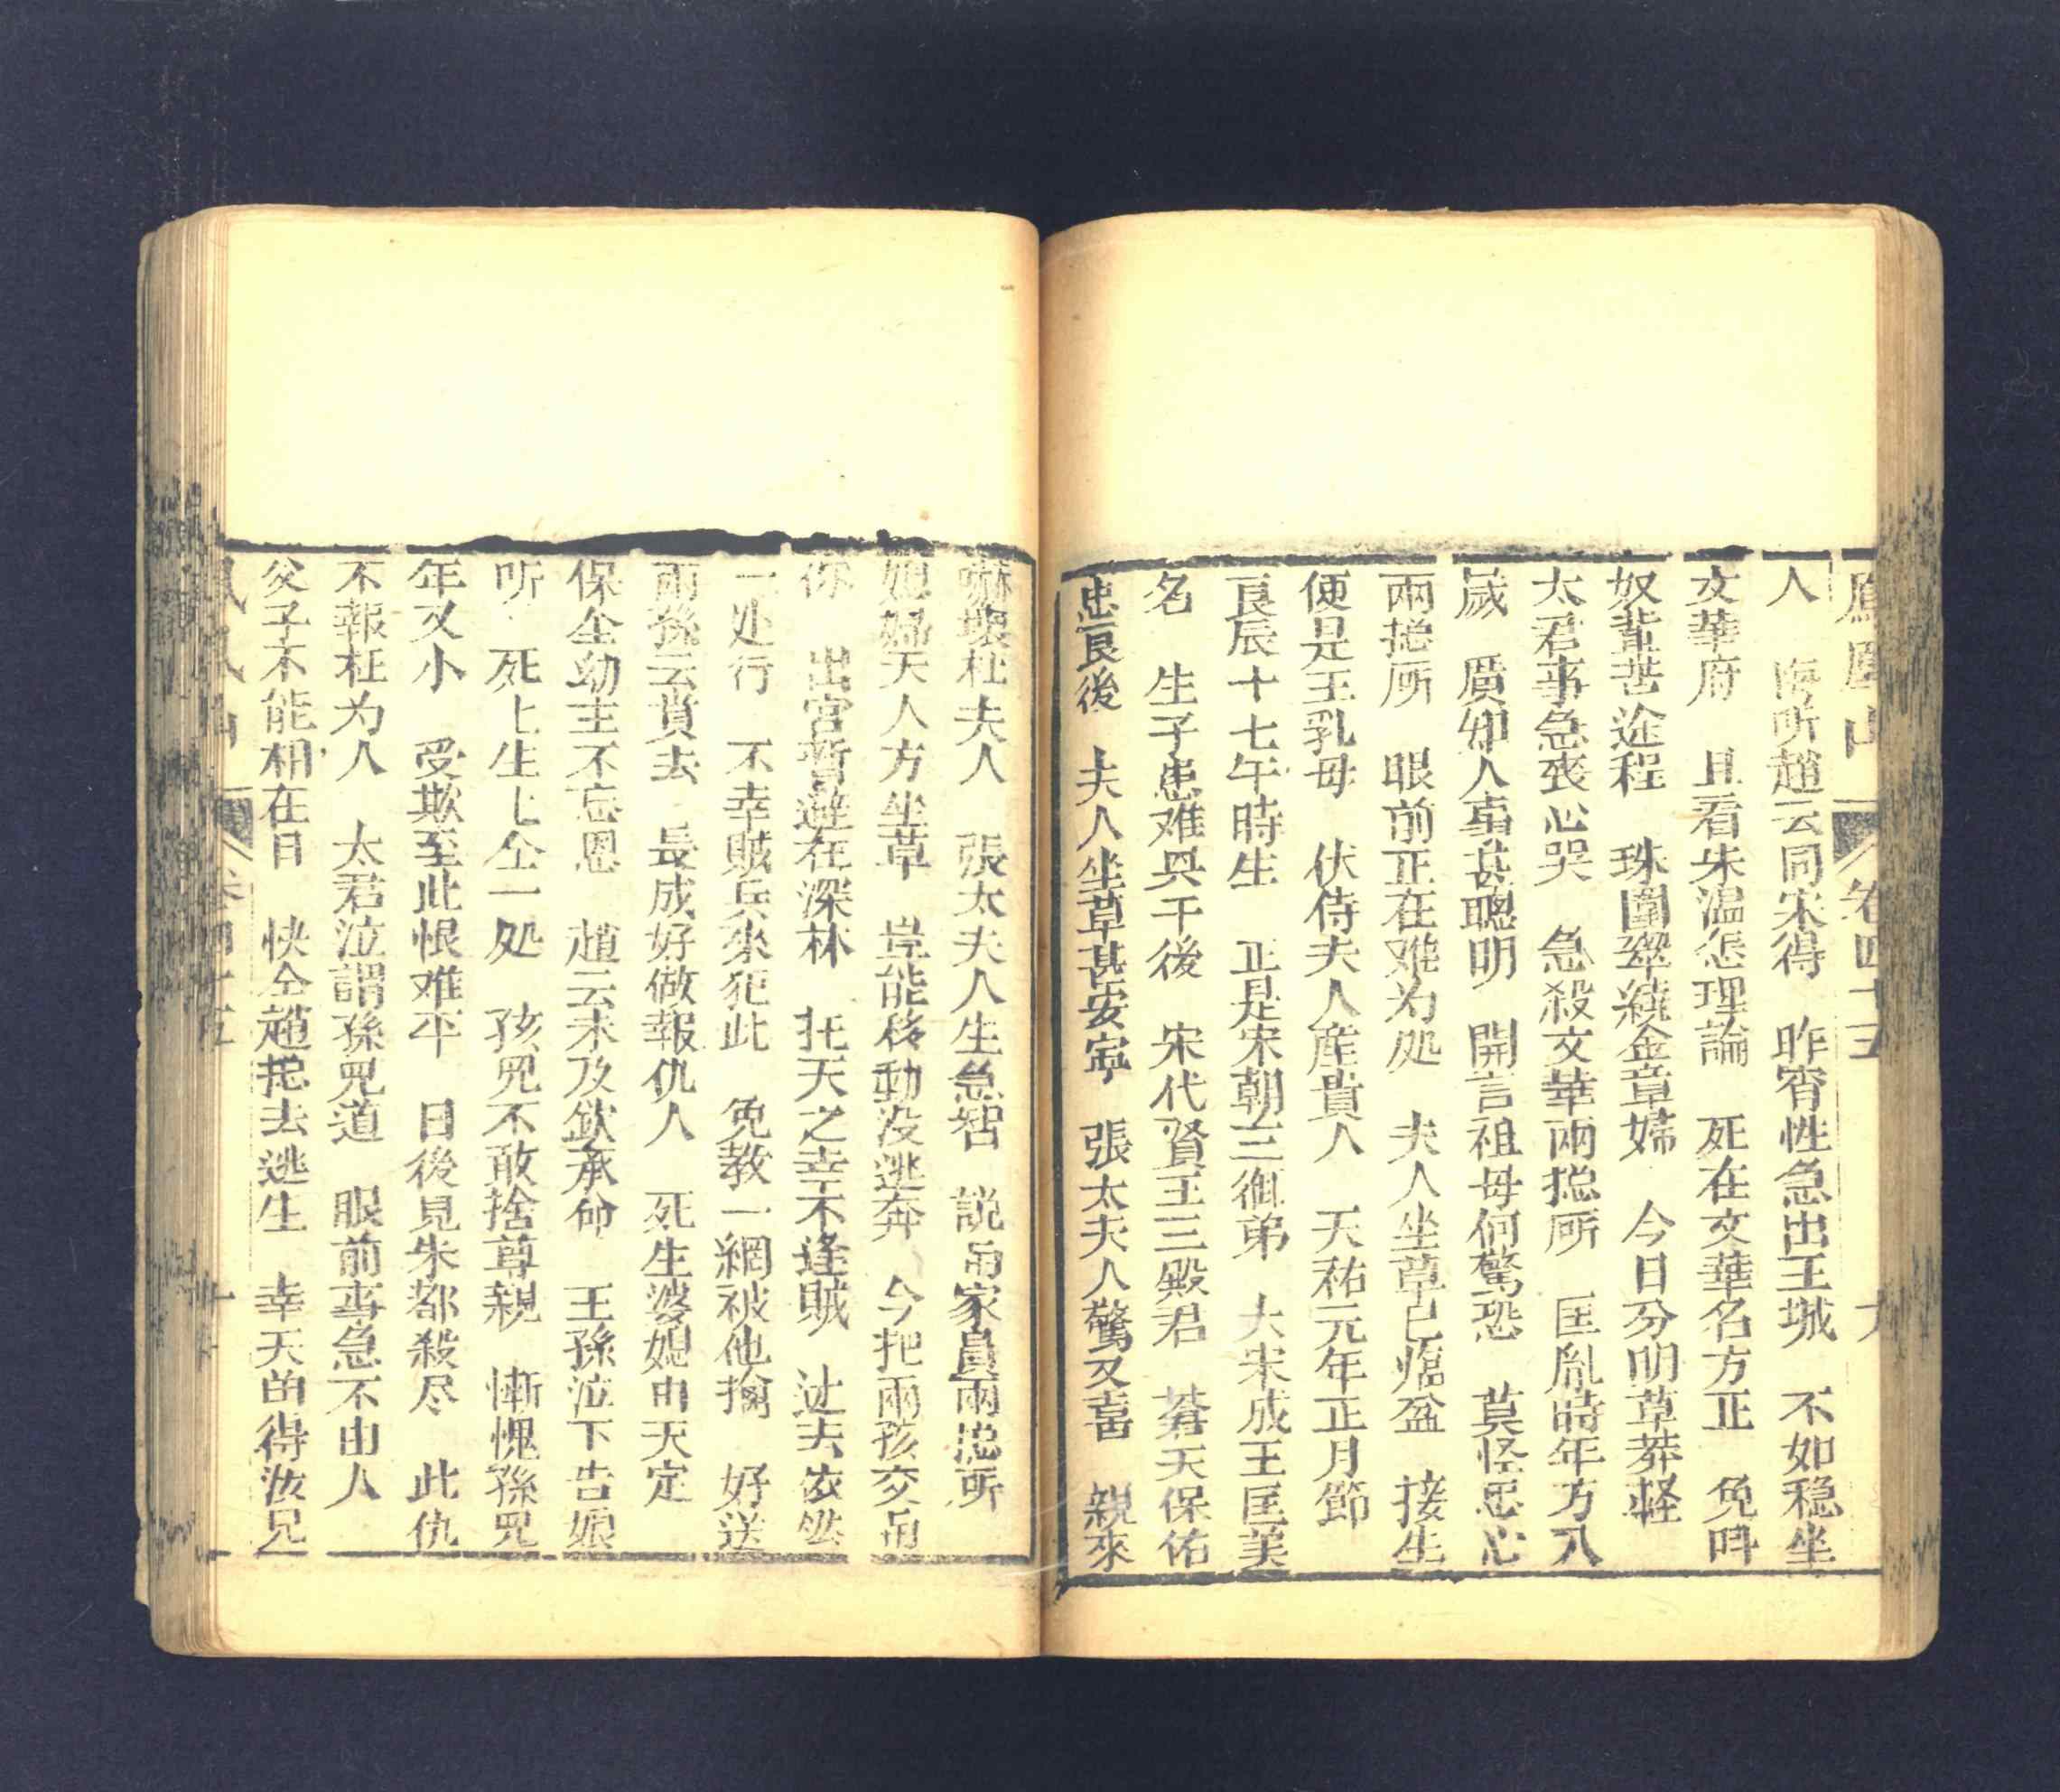 鳳凰山 卷四十五 九
人 悔听趙云同宋得 昨宵性急出王城 不如稳坐
文華府 且看朱温怎理論 死在文華名方正 免叫
奴輩苦途程 珠圍翠繞金章婦 今日分明草莽軽
太君事急丧心哭 急殺文華兩摠所 匡胤時年方八
歲 贋卯人事甚聰明 開言祖母何驚恐 莫怪忠心
兩摠所 眼前正在难为处 夫人坐草已臨盆 接生
便是王乳母 伏侍夫人産貴人 天祐元年正月節
良辰十七午時生 正是宋朝三御弟 大宋成王匡美
名 生子患难興干後 宋代賢王三殿君 蒼天保佑
忠良後 夫人坐草甚安寧 張太夫人驚又喜 親來
嚇壞杜夫人 張太夫人生急智 説吊家員兩摠所
媳婦夫人方坐草 豈能移動没逃奔 今把兩孩交吊
你 出宮暫避在深林 托天之幸不逢賊 过去依然
一处行 不幸賊兵來犯此 免教一網被他擒 好送
兩孫云貴去 長成好做報仇人 死生婆媳由天定
保全幼主不忘恩 趙云未及欽承命 王孫泣下告娘
听 死上生上仝一处 孩児不敢捨尊親 慚愧孫児
年又小 受欺至此恨难平 日後見朱都殺尽 此仇
不報枉为人 太君泣謂孫児道 眼前事急不由人
父子不能相在日 快仝趙抱去逃生 幸天的得汝兄